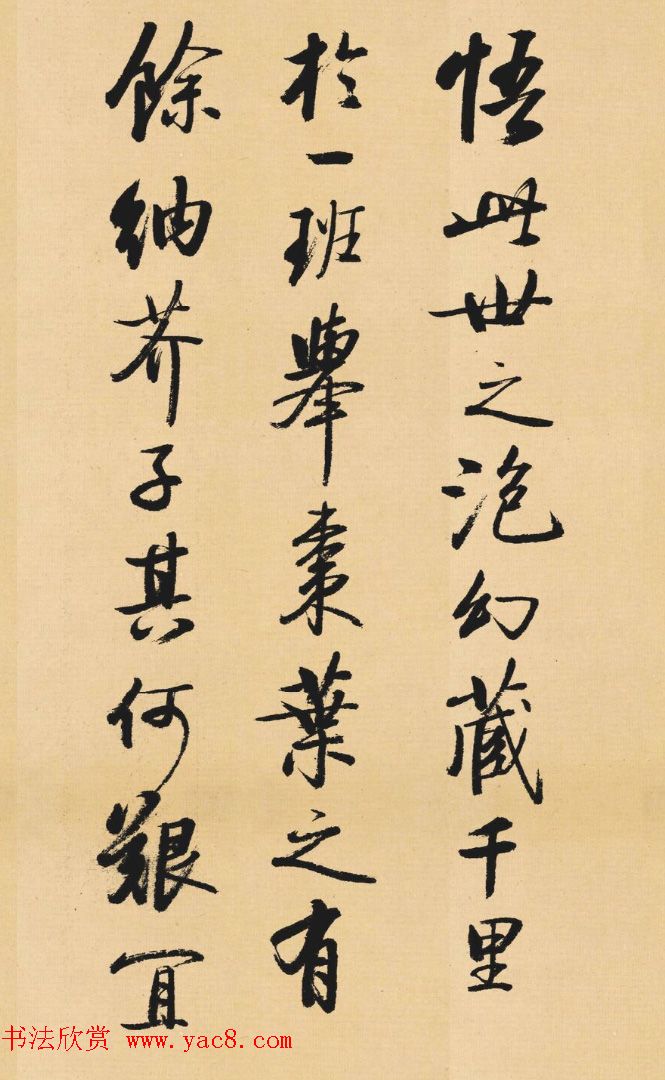 悟此世之泡幻藏千里
於一班舉棗葉之有
餘納芥子其何艱宜
书法欣赏 www.yac8.com